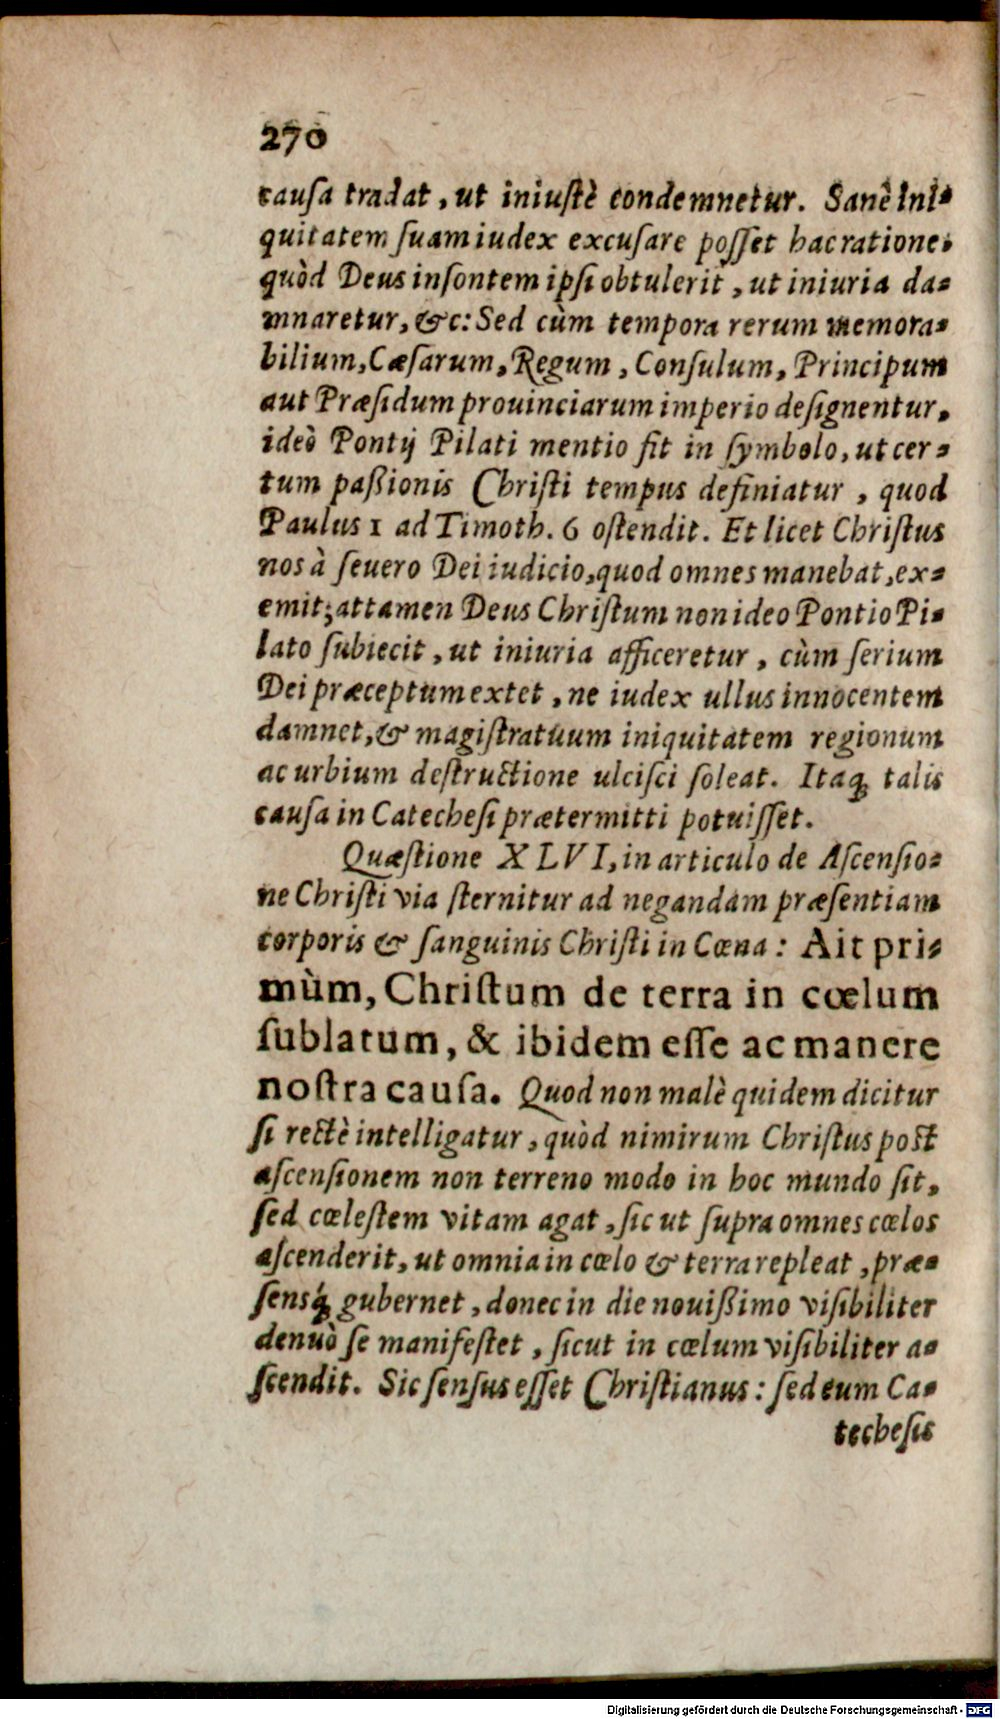 270
causa tradat, ut iniustè condemnetur. Sanè ini-
quitatem suam iudex excusare posset hac ratione,
quòd Deus insontem ipsi obtulerit, ut iniuria da-
mnaretur, &c: Sed cùm tempora rerum memora-
bilium, Cæsarum, Regum, Consulum, Principum
aut Præsidum prouinciarum imperio designentur,
ideò Pontij Pilati mentio fit in symbolo, ut cer-
tum paßionis Christi tempus definiatur, quod
Paulus 1 ad Timoth. 6 ostendit. Et licet Christus
nos à seuero Dei iudicio, quod omnes manebat, ex-
emit; attamen Deus Christum non ideo Pontio Pi-
lato subiecit, ut iniuria afficeretur, cùm serium
Dei præceptum extet, ne iudex ullus innocentem
damnet, & magistratuum iniquitatem regionum
ac urbium destructione ulcisci soleat. Itaq; talis
causa in Catechesi prætermitti potuisset.
Quæstione XLVI, in articulo de Ascensio-
ne Christi via sternitur ad negandam præsentiam
corporis & sanguinis Christi in Cœna: Ait pri-
mùm, Christum de terra in cœlum
sublatum, & ibidem esse ac manere
nostra causa. Quod non malè quidem dicitur
si rectè intelligatur, quòd nimirum Christus post
ascensionem non terreno modo in hoc mundo sit,
sed cœlestem vitam agat, sic ut supra omnes cœlos
ascenderit, ut omnia in cœlo & terra repleat, præ-
sensq́; gubernet, donec in die nouißimo visibiliter
denuò se manifestet, sicut in cœlum visibiliter a-
scendit. Sic sensus esset Christianus: sed eum Ca-
techesis
Digitalisierung gefördert durch die Deutsche Forschungsgemeinschaft - DFG